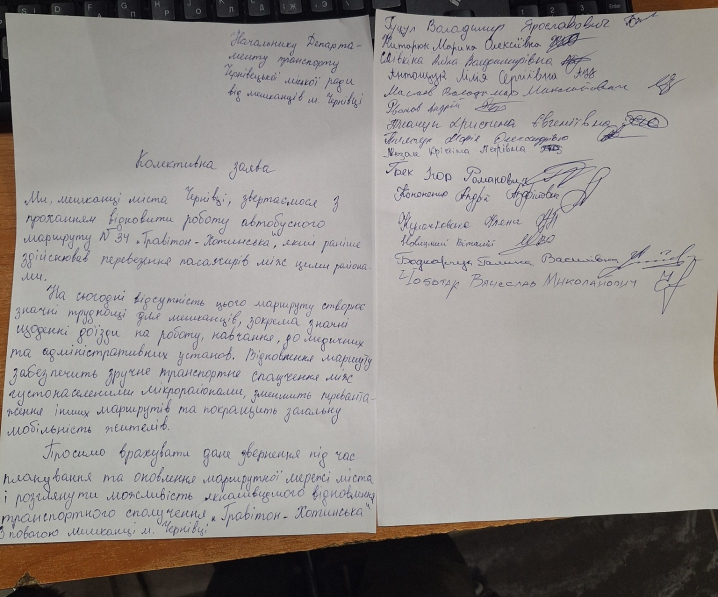 Начальнику Департа-
менту транспорту
Чернівецької міської ради
від мешканців м. Чернівці
Колективна заява
Ми, мешканці міста Чернівці, звертаємося з
проханням відновити роботу автобусного
маршруту №34 „Гравітон-Хотинська", який раніше
здійснював перевезення пасажирів між цими района-
ми.
На сьогодні відсутність цього маршруту створює
значні труднощі для мешканців, зокрема значні
щоденні доїзди на роботу, навчання, до медичних
та адміністративних установ. Відновлення маршруту
забезпечить зручне транспортне сполучення між
густонаселеними мікрорайонами, зменшить переванта-
ження інших маршрутів та покращить загальну
мобільність жителів.
Просимо врахувати дане звернення під час
планування та оновлення маршрутної мережі міста
і розглянути можливість якнайшвидшого відновлення
транспортного сполучення „Гравітон-Хотинська"
З повагою мешканці м. Чернівці
Володимир Ярославович
Марина Олексіївна
Алла Володимирівна
Антощук Лілія Сергіївна
Володимир Миколайович
Іванов Андрій
Христина Євгеніївна
Марія Олександрівна
Крістіна Петрівна
Грек Ігор Романович
Кононенко Андрій
Олена
Новицький Віталій
Боднарчук Галина Василівна
Чоботар Вячеслав Миколайович